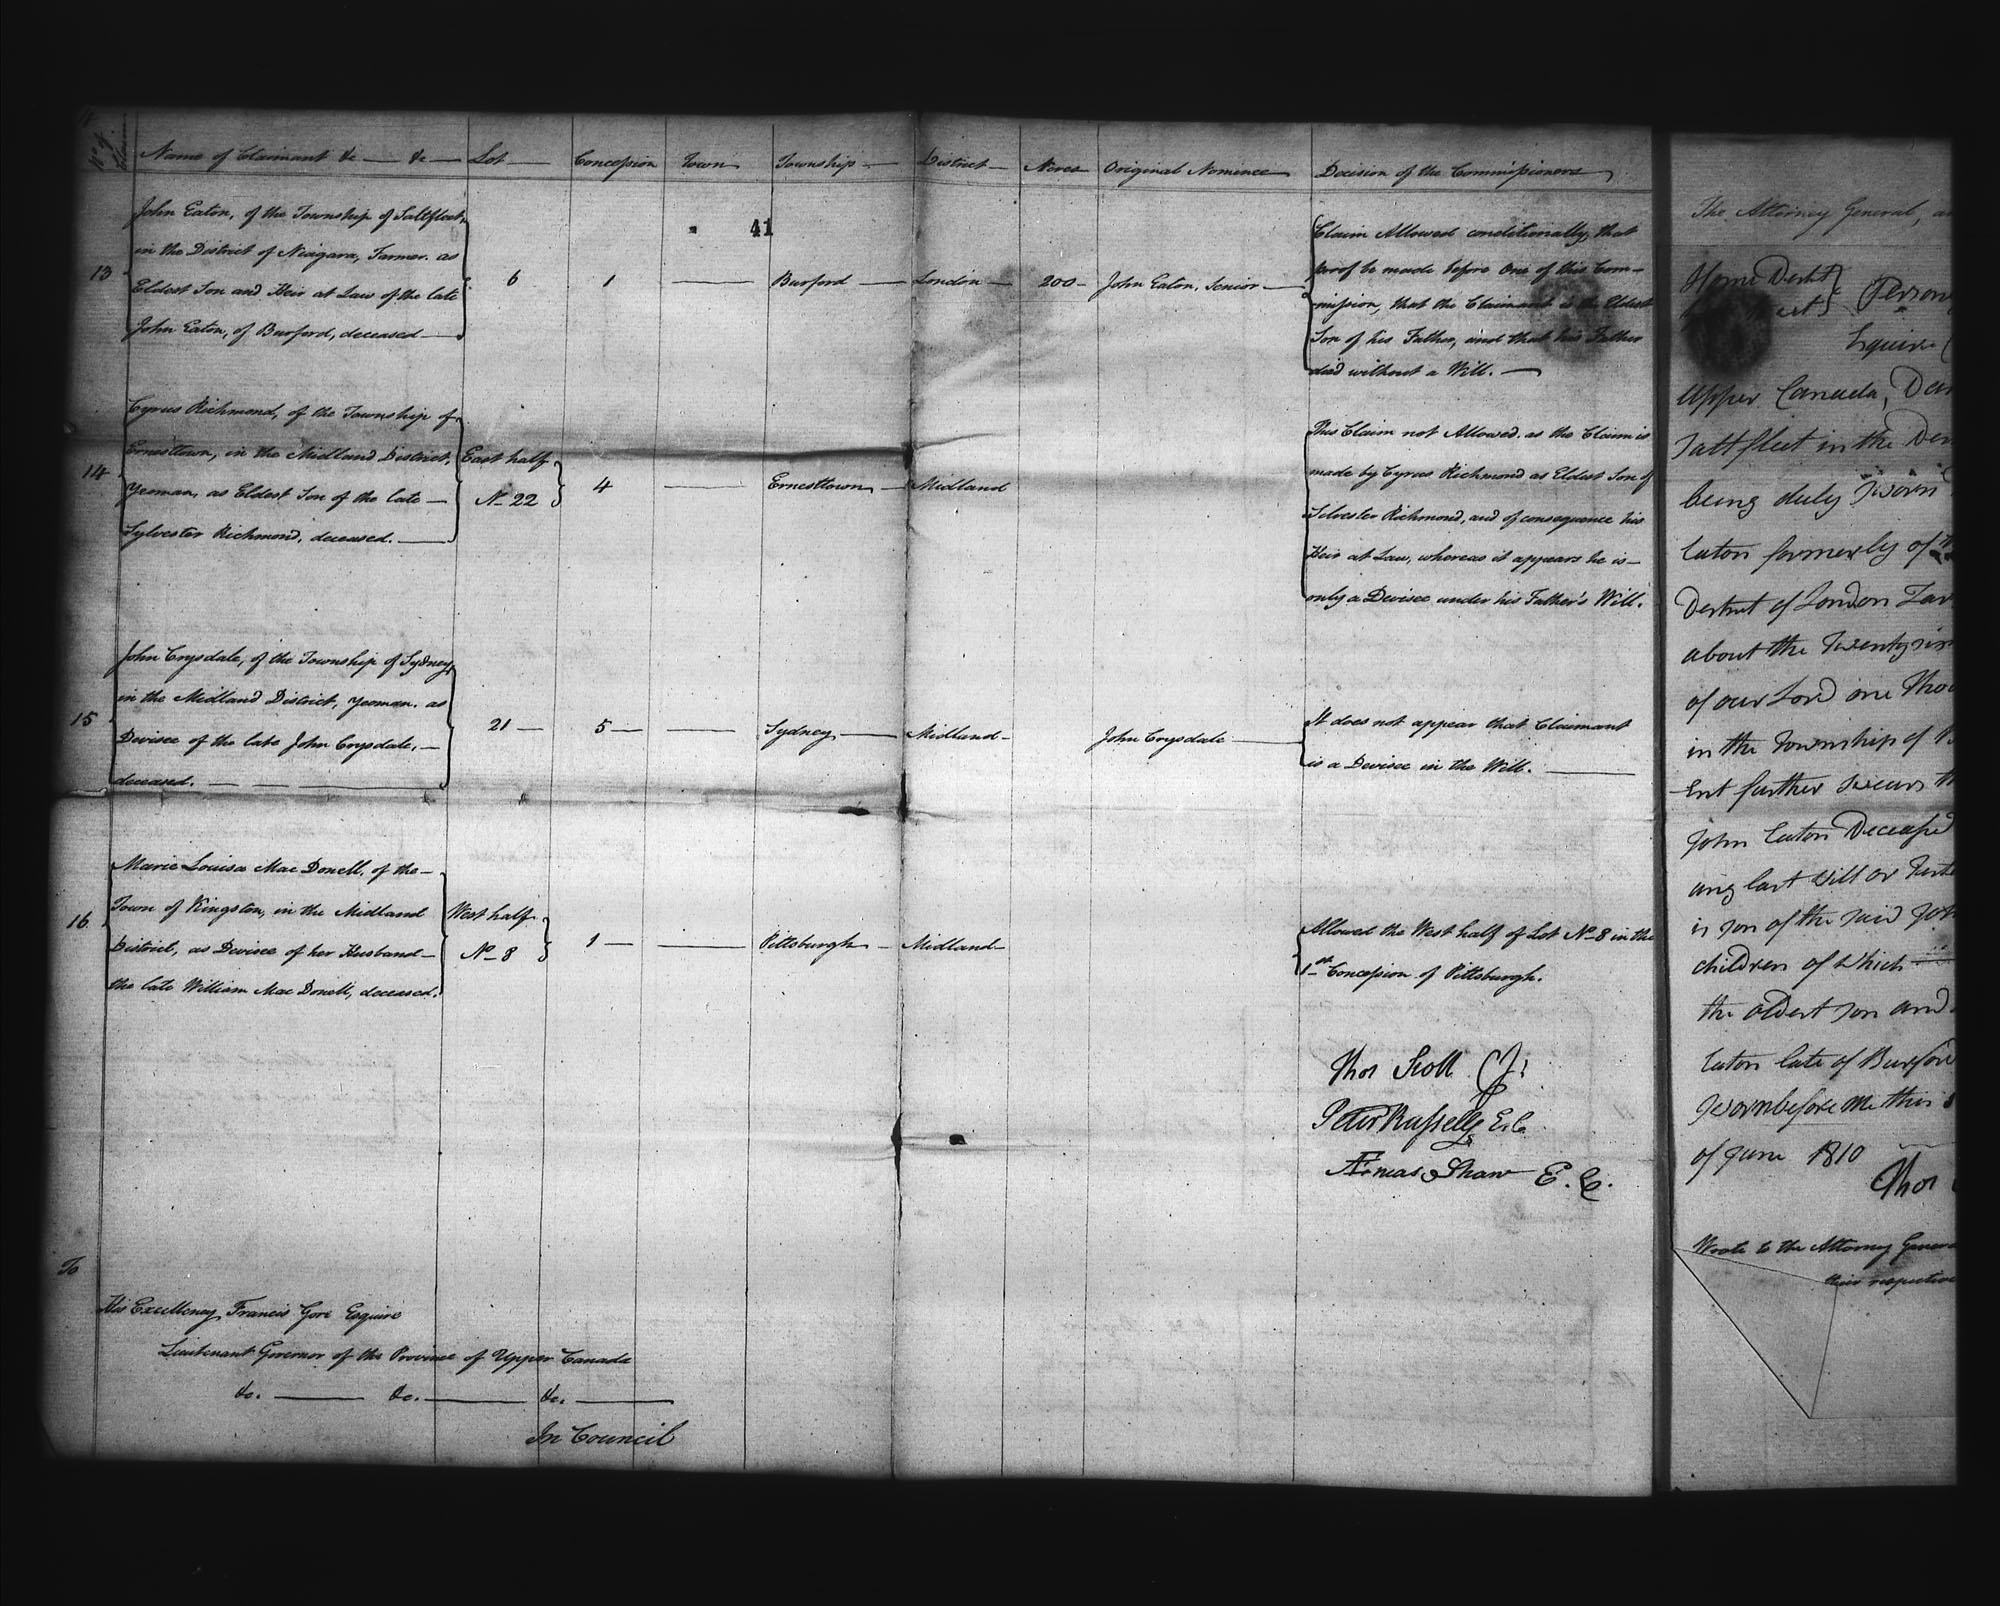 No. of Claim
Name of Claimant &c — &c — Lot — Concession Town Township — District — Acres Original Nominee Decision of the Commissioners
41
13
John Eaton, of the Township of Saltfleet,
in the District of Niagara, Farmer. as
Eldest Son and Heir at Law of the late
John Eaton, of Burford, deceased —
6 1 — Burford — London — 200 — John Eaton, Senior —
Claim Allowed conditionally, that
proof be made before One of this Com-
mission, that the Claimant is the Eldest
Son of his Father, and that his Father
died without a Will. —
14
Cyrus Richmond, of the Township of
Ernesttown, in the Midland District,
Yeoman, as Eldest Son of the late —
Sylvester Richmond, deceased. —
East half
No. 22
4 — Ernesttown — Midland
This Claim not Allowed. as the Claim is
made by Cyrus Richmond as Eldest Son of
Silvester Richmond, and of consequence his
Heir at Law, whereas it appears he is —
only a Devisee under his Father's Will.
15
John Crysdale, of the Township of Sydney,
in the Midland District, Yeoman. as
Devisee of the late John Crysdale, —
deceased. — — —
21 — 5 — — Sydney — Midland — John Crysdale —
It does not appear that Claimant
is a Devisee in the Will. —
16
Marie Louisa Mac Donell, of the —
Town of Kingston, in the Midland
District, as Devisee of her Husband —
the late William Mac Donell, deceased.
West half
No. 8
1 — — Pittsburgh — Midland —
Allowed the West half of Lot No. 8 in the
1st Concession of Pittsburgh.
Thos Scott C J.
Peter Russell E.C.
Æneas Shaw E. C.
To
His Excellency Francis Gore Esquire
Lieutenant Governor of the Province of Upper Canada
&c. — &c. — &c. —
In Council
The Attorney General,
Home Distt Person
Esquire
Upper Canada,
Saltfleet in the
being duly sworn
Eaton formerly of
District of London
about the Twenty
of our Lord one
in the Township of
ent further swears
John Eaton Deceased
any last Will or
is son of the said
children of which
the oldest son and
Eaton late of
Sworn before me this
of June 1810
Thos
Wrote to the Attorney
their